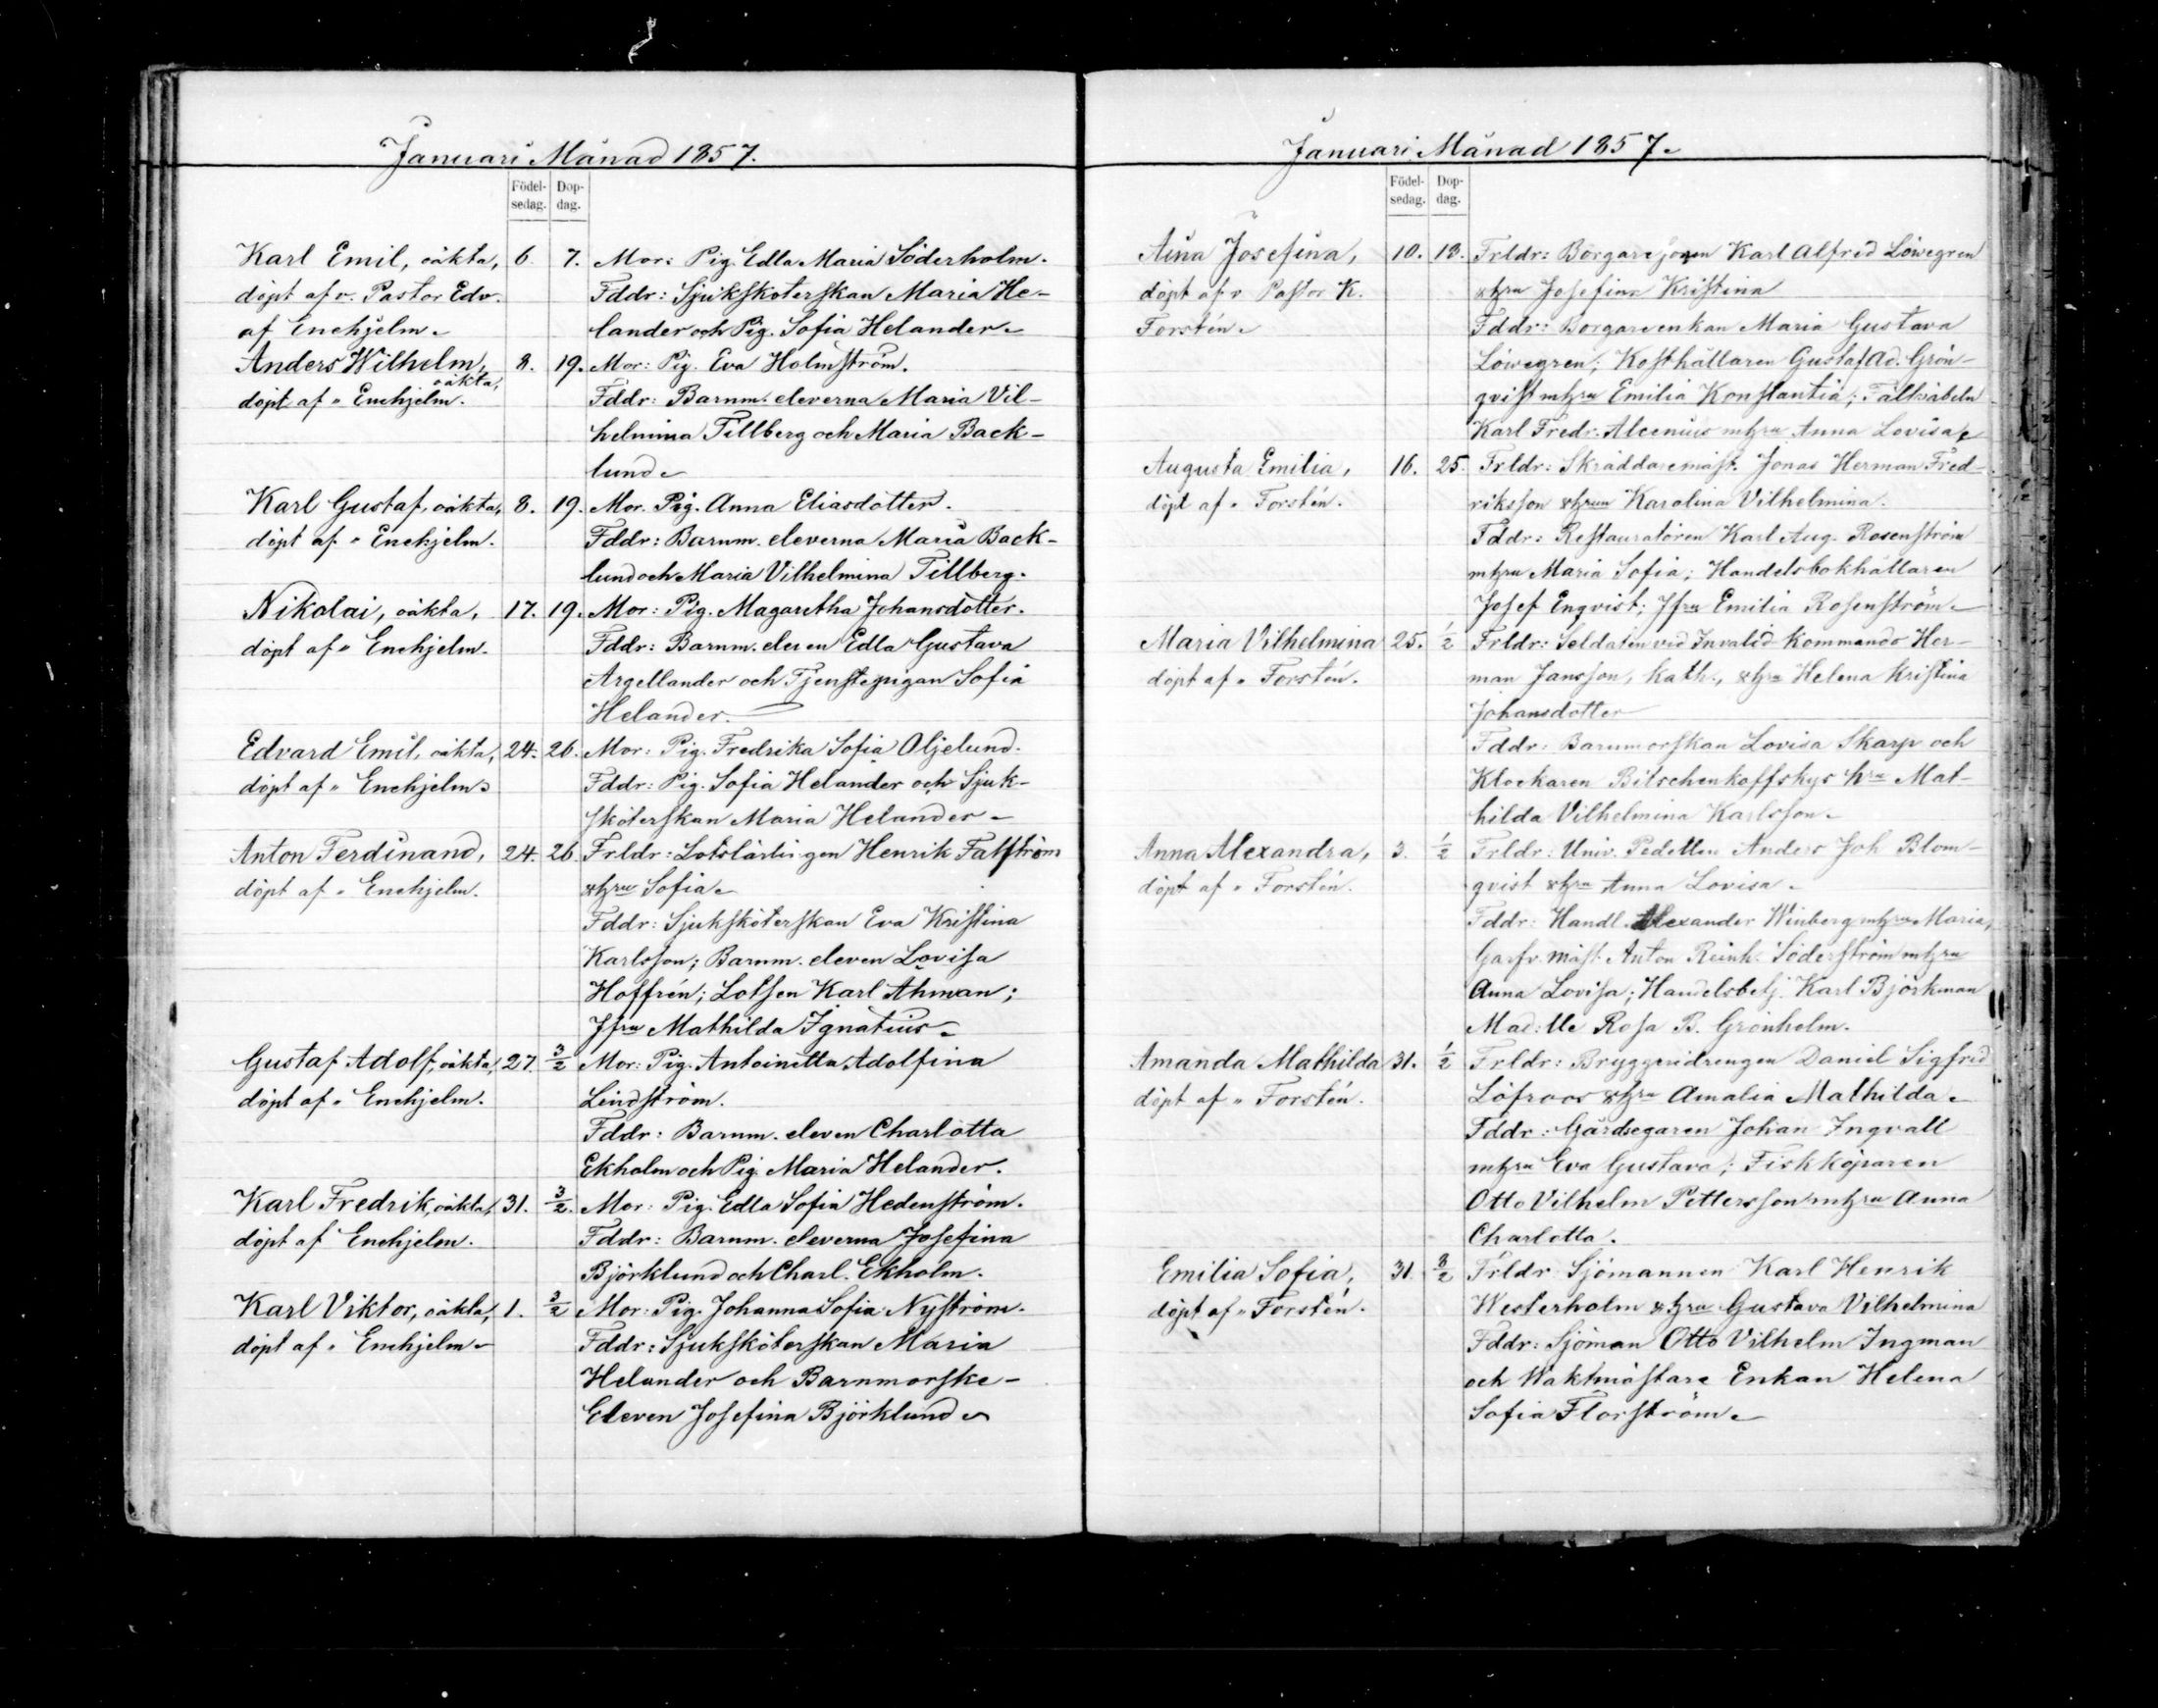 Januari Månad 1857.
Födel- Dop-
sedag. dag.
Karl Emil, oäkta, 6. 7. Mor: Pig. Edla Maria Söderholm.
döpt af v. Pastor Edv. Fddr: Sjuksköterskan Maria He-
af Enehjelm. lander och Pig. Sofia Helander.
Anders Wilhelm, 8. 19. Mor: Pig. Eva Holmström.
oäkta,
döpt af " Enehjelm. Fddr: Barnm. eleverna Maria Vil-
helmina Tillberg och Maria Back-
lund.
Karl Gustaf, oäkta, 8. 19. Mor. Pig. Anna Eliasdotter.
döpt af " Enehjelm. Fddr: Barnm. eleverna Maria Back-
lund och Maria Vilhelmina Tillberg.
Nikolai, oäkta, 17. 19. Mor: Pig. Magaretha Johansdotter.
döpt af " Enehjelm. Fddr: Barnm. eleven Edla Gustava
Argellander och Tjenstepigan Sofia
Helander.
Edvard Emil, oäkta, 24. 26. Mor: Pig. Fredrika Sofia Oljelund.
döpt af " Enehjelm. Fddr: Pig. Sofia Helander och Sjuk-
sköterskan Maria Helander.
Anton Ferdinand, 24. 26. Frldr: Lotslärlingen Henrik Falström
döpt af " Enehjelm. & hru Sofia.
Fddr: Sjuksköterskan Eva Kristina
Karlsson; Barnm. eleven Lovisa
Hoffrén; Lotsen Karl Åhman;
Jfru Mathilda Ignatius.
Gustaf Adolf, oäkta, 27. 3/2 Mor: Pig. Antoinetta Adolfina
döpt af " Enehjelm. Lindström.
Fddr: Barnm. eleven Charlotta
Ekholm och Pig. Maria Helander.
Karl Fredrik, oäkta, 31. 3/2. Mor: Pig. Edla Sofia Hedenström.
döpt af Enehjelm. Fddr: Barnm. eleverna Josefina
Björklund och Charl. Ekholm.
Karl Viktor, oäkta, 1. 3/2 Mor: Pig. Johanna Sofia Nyström.
döpt af " Enehjelm. Fddr: Sjuksköterskan Maria
Helander och Barnmorske-
Eleven Josefina Björklund.
Januari Månad 1857.
Födel- Dop-
sedag. dag.
Aina Josefina, 10. 18. Frldr: Borgaresonen Karl Alfred Löwegren
döpt af v Pastor K. & hru Josefina Kristina
Forstén. Fddr: Borgareenkan Maria Gustava
Löwegren; Kosthållaren Gustaf Ad. Grön-
qvist m hru Emilia Konstantia; Fältväbeln
Karl Fredr. Alcenius m hru Anna Lovisa.
Augusta Emilia, 16. 25. Frldr: Skräddaremäst. Jonas Herman Fred-
döpt af " Forstén. riksson & hrun Karolina Vilhelmina.
Fddr: Restauratören Karl Aug. Rosenström
m hru Maria Sofia; Handelsbokhållaren
Josef Enqvist; Jfru Emilia Rosenström.
Maria Vilhelmina 25. 1/2 Frldr: Soldaten vid Invalid Kommando Her-
döpt af " Forstén. man Jansson, Kath., & hru Helena Kristina
Johansdotter
Fddr: Barnmorskan Lovisa Skarp och
Klockaren Bitschenkoffskys hru Mat-
hilda Vilhelmina Karlsson.
Anna Alexandra, 3. 1/2 Frldr: Univ. Pedellen Anders Joh Blom-
döpt af " Forstén. qvist & hru Anna Lovisa.
Fddr: Handl. Alexander Winberg m hru Maria,
Garfv. mäst. Anton Reinh. Söderström m hru
Anna Lovisa; Handelsbetj. Karl Björkman
Mad:lle Rosa B. Grönholm.
Amanda Mathilda 31. 1/2 Frldr: Bryggeridrengen Daniel Sigfrid
döpt af " Forstén. Löfroos & hru Amalia Mathilda.
Fddr: Gårdsegaren Johan Ingvall
m hru Eva Gustava; Fiskköparen
Otto Vilhelm Pettersson m hru Anna
Charlotta.
Emilia Sofia, 31. 3/2 Frldr Sjömannen Karl Henrik
döpt af " Forstén. Westerholm & hru Gustava Vilhelmina
Fddr: Sjöman Otto Vilhelm Ingman
och Waktmästare Enkan Helena
Sofia Florström.